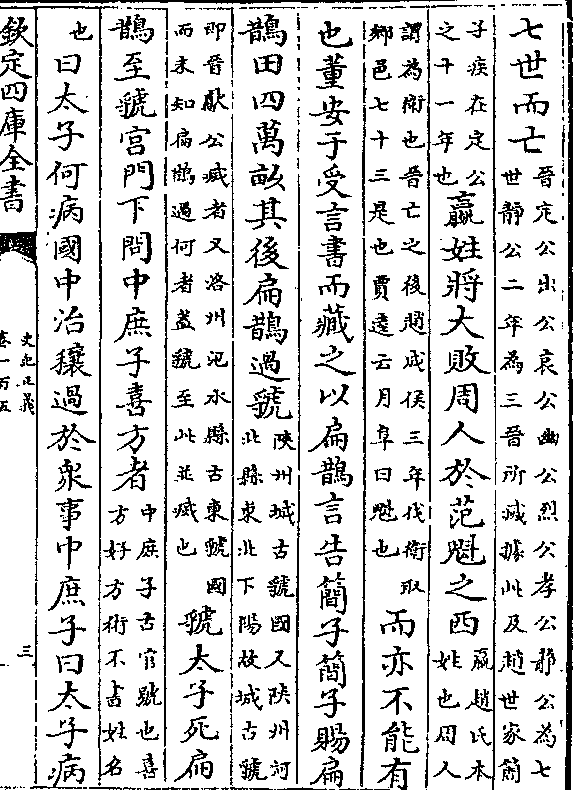 七世而亡晉定公出公哀公幽公烈公孝公靜公為七
世靜公二年為三晉所滅據此及趙世家簡
子疾在定公
之十一年也嬴姓將大敗周人於范魁之西嬴趙氏本
姓也周人
謂為衛也晉亡之後趙成侯三年伐衛取
鄉邑七十三是也賈逵云月阜曰魁也而亦不能有
也董安于受言書而藏之以扁鵲言告簡子簡子賜扁
鵲田四萬畝其後扁鵲過虢陝州城古虢國又陝州河
北縣東北下陽故城古虢
即晉獻公滅者又洛州汜水縣古東虢國
而未知扁鵲過何者蓋虢至此並滅也虢太子死扁
鵲至虢宫門下問中庶子喜方者中庶子古官號也喜
方好方術不書姓名
也曰太子何病國中治穰過於衆事中庶子曰太子病
欽定四庫全書
史記正義
卷一百五
三